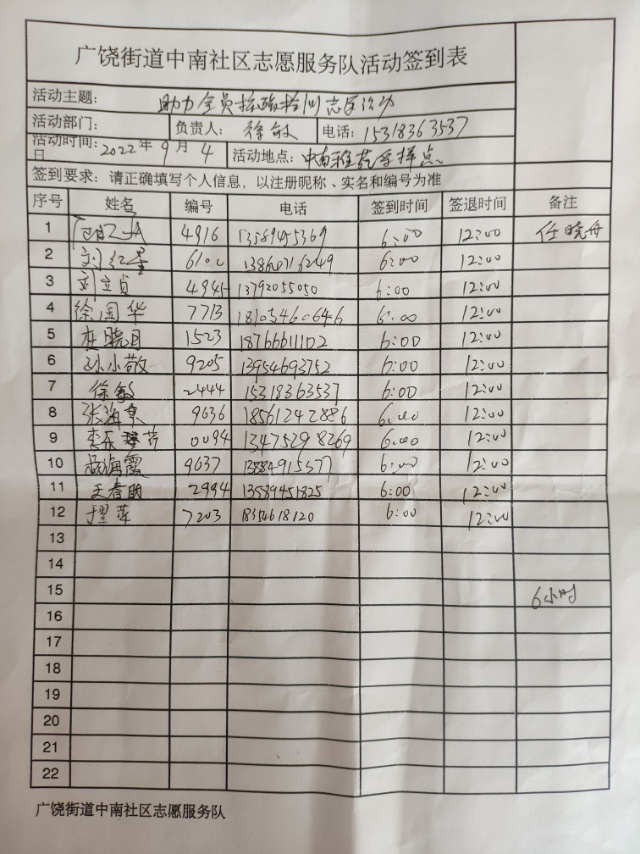 广饶街道中南社区志愿服务队活动签到表
活动主题: 助力全员核酸检测志愿活动
活动部门: 负责人: 徐敏 电话: 15318363537
活动时间: 2022年9月4日 活动地点: 中南 采样点
签到要求: 请正确填写个人信息,以注册昵称、实名和编号为准
序号 姓名 编号 电话 签到时间 签退时间 备注
1 4916 13589455369 6:00 12:00 任晓舟
2 刘红星 610 6:00 12:00
3 刘立贞 4945 13792055050 6:00 12:00
4 徐国华 7713 18105460646 6:00 12:00
5 杜晓月 1523 18766611102 6:00 12:00
6 孙小敬 9205 13954693752 6:00 12:00
7 徐敏 2444 15318363537 6:00 12:00
8 张海泉 9636 18561242886 6:00 12:00
9 0094 13475298269 6:00 12:00
10 海霞 9637 13884915577 6:00 12:00
11 王春 2994 13589451825 6:00 12:00
12 7203 1834618120 6:00 12:00
13
14
15 6小时
16
17
18
19
20
21
22
广饶街道中南社区志愿服务队